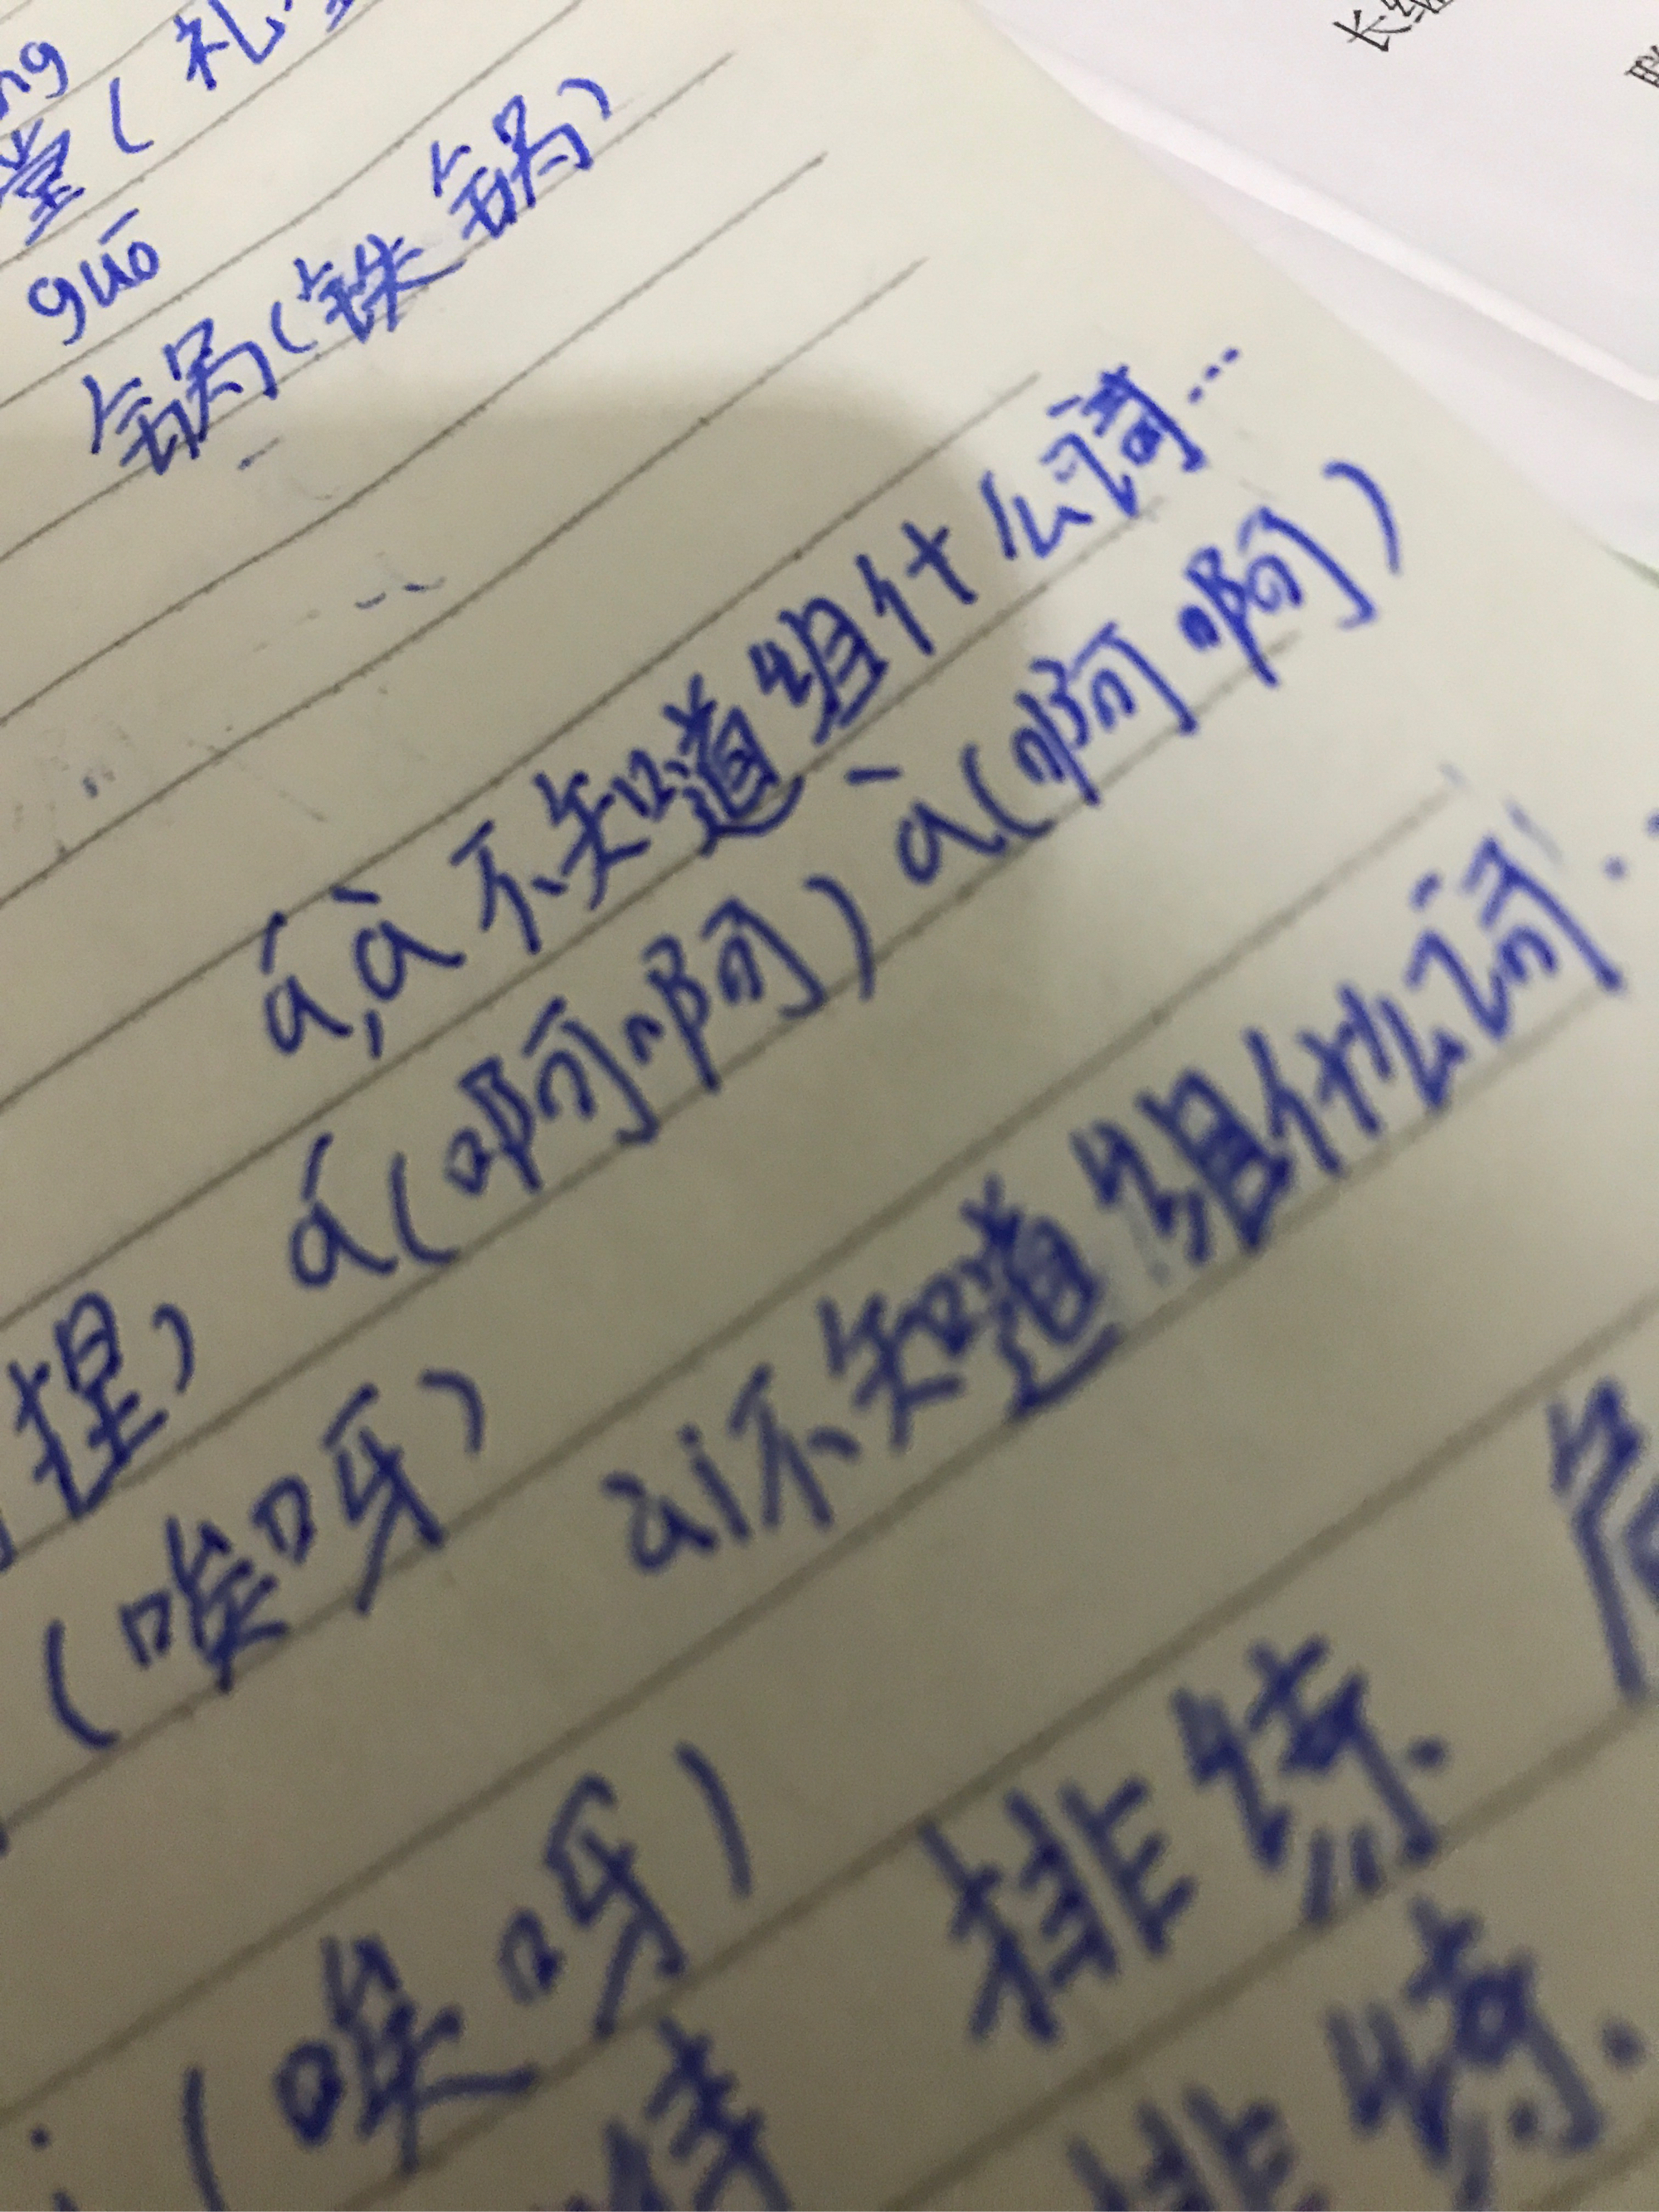 堂(礼
guō
锅(铁锅)
á,à不知道组什么词…
捏) á(啊啊) à(啊啊)
(唉呀) ài不知道组什么词..
(唉呀) 排练.
排练.